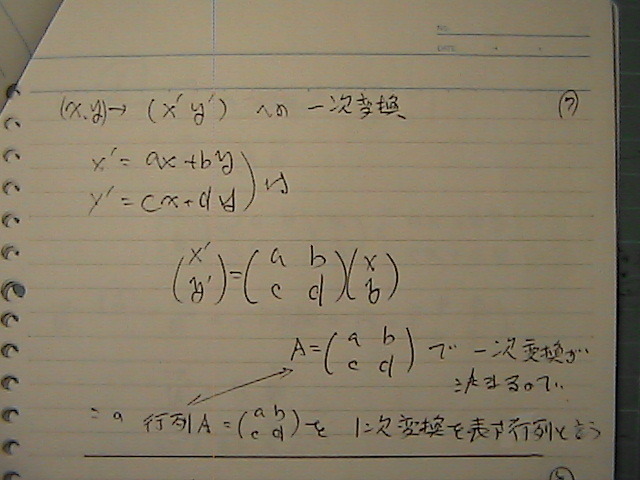 NO.
DATE
(x,y)→ (x' y') への 一次変換 ⑦
x' = ax+by
y' = cx+dy は
(x' y') = (a b c d)(x b)
A = (a b c d) で 一次変換が
決まるので
この 行列A = (a b c d) を 1次変換を表す行列と言う